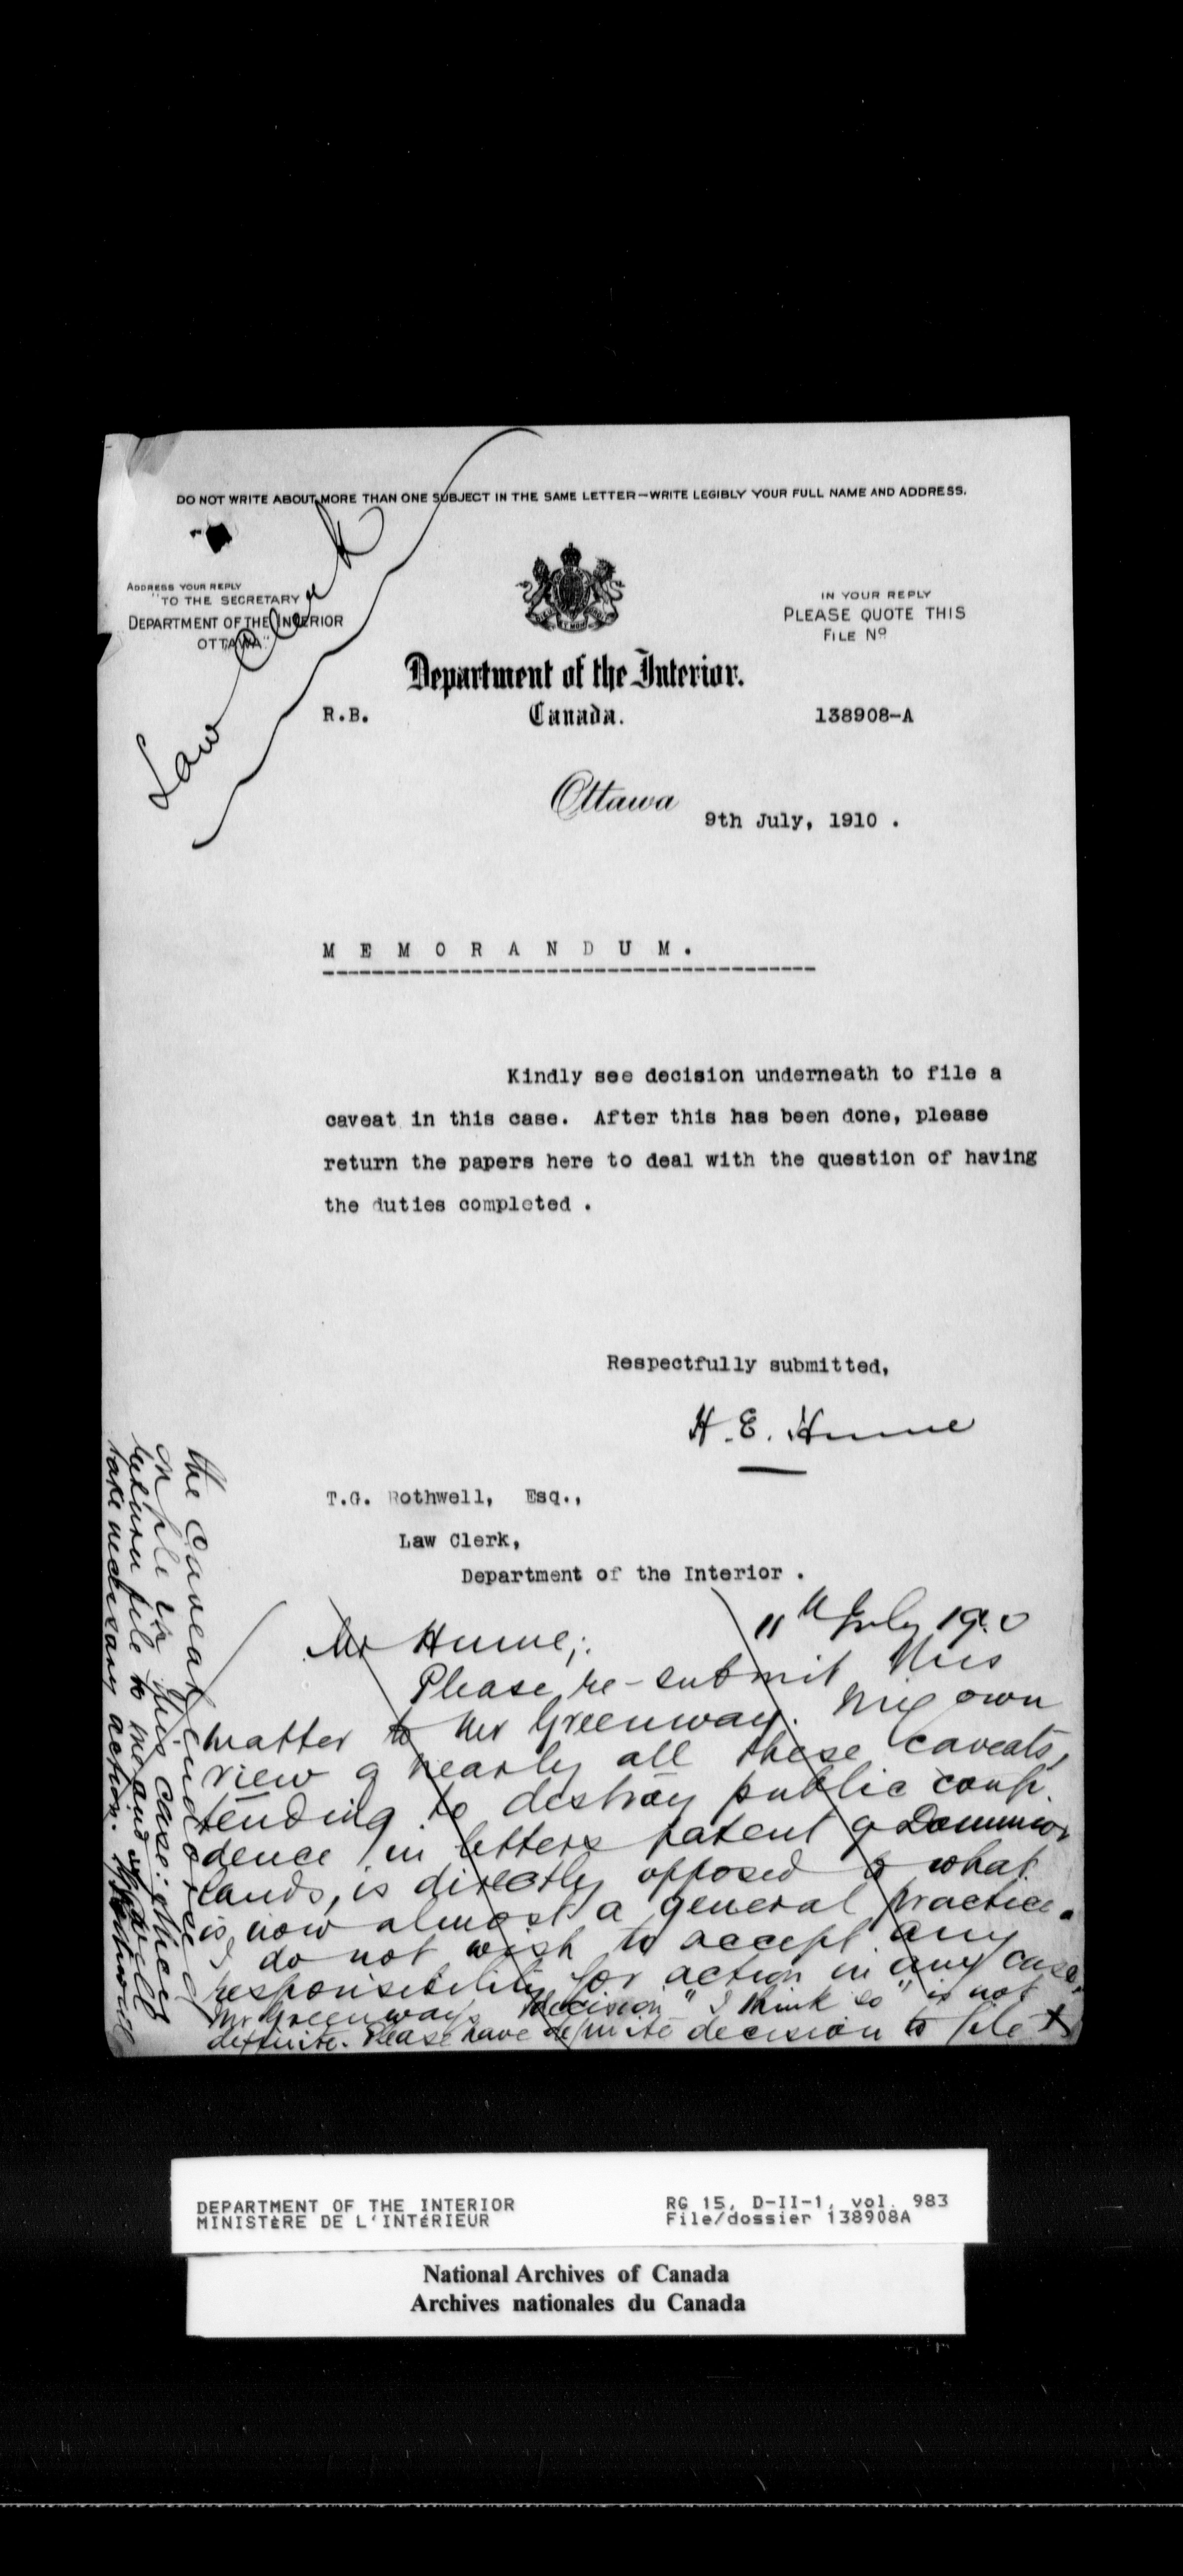 DO NOT WRITE ABOUT MORE THAN ONE SUBJECT IN THE SAME LETTER—WRITE LEGIBLY YOUR FULL NAME AND ADDRESS.
Law Clerk
ADDRESS YOUR REPLY
"TO THE SECRETARY
DEPARTMENT OF THE INTERIOR
OTTAWA"
IN YOUR REPLY
PLEASE QUOTE THIS
FILE No
Department of the Interior.
R.B.
Canada.
138908-A
Ottawa
9th July, 1910 .
M E M O R A N D U M .
Kindly see decision underneath to file a
caveat in this case. After this has been done, please
return the papers here to deal with the question of having
the duties completed .
Respectfully submitted,
H. E. Hume
T.G. Rothwell, Esq.,
Law Clerk,
Department of the Interior .
11th July 1910
Mr Hume;
Please re-submit this
matter to Mr Greenway. My own
view of nearly all these caveats,
tending to destroy public confi-
dence in letters patent of Dominion
lands, is directly opposed to what
is now almost a general practice.
I do not wish to accept any
responsibility for action in any case.
Mr Greenway's decision "I think so" is not
definite. Please have definite decision to file
the caveat endorsed
on file in this case: then
return file to me and I will
take necessary action. T G Rothwell
DEPARTMENT OF THE INTERIOR
MINISTÈRE DE L'INTÉRIEUR
RG 15, D-II-1, vol. 983
File/dossier 138908A
National Archives of Canada
Archives nationales du Canada